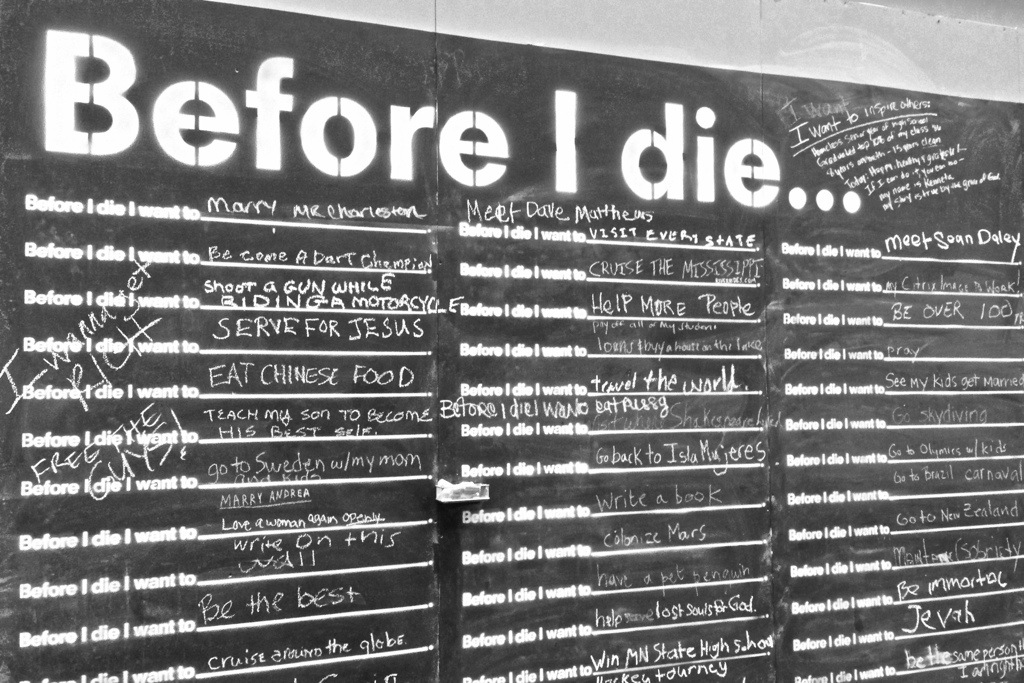 Before I die...
I want
I want to inspire others:
Homeless senior year of high school
Graduated top 10% of my class 96
Today: Happy, healthy & grateful!
If I can do it you can too
my name is
Before I die I want to Marry Mr Charleston
Before I die I want to Be come A Dart Champion
Before I die I want to Shoot A GUN WHILE
RIDING A MOTORCYCLE
Before I die I want to SERVE FOR JESUS
Before I die I want to EAT CHINESE FOOD
Before I die I want to TEACH my SON TO BECOME
HIS BEST SELF.
Before I die I want to go to Sweden w/my mom
and kids
MARRY ANDREA
Before I die I want to Love a woman again openly
Before I die I want to write on this
wall
Before I die I want to Be the best
Before I die I want to cruise around the globe.
I wanna get
RICH
FREE THE
GUYS!
Meet Dave Matthews
Before I die I want to VISIT EVERY STATE
Before I die I want to CRUISE THE MISSISSIPPI
Before I die I want to HELP MORE PeoPle
pay off all of my student
Before I die I want to loans & buy a house on the lake
Before I die I want to travel the world.
Before I die I want to eat pussy
Before I die I want to Shakespeare
Before I die I want to Go back to Isla Mujeres
Before I die I want to write a book
Before I die I want to colonize Mars
Before I die I want to have a pet penguin
Before I die I want to help lost souls for God.
Before I die I want to Win MN State High school
Hockey tourney
Before I die I want to meet Sean Daley
Before I die I want to my Citrix Image to Work!
Before I die I want to BE OVER 100
Before I die I want to pray
Before I die I want to See my kids get married
Before I die I want to Go skydiving
Before I die I want to Go to Olympics w/ kids
Before I die I want to Go to Brazil carnaval
Before I die I want to Go to New Zealand
Before I die I want to Sobriety
Before I die I want to Be immortal
Before I die I want to Jevah
Before I die I want to be the same person
I am right